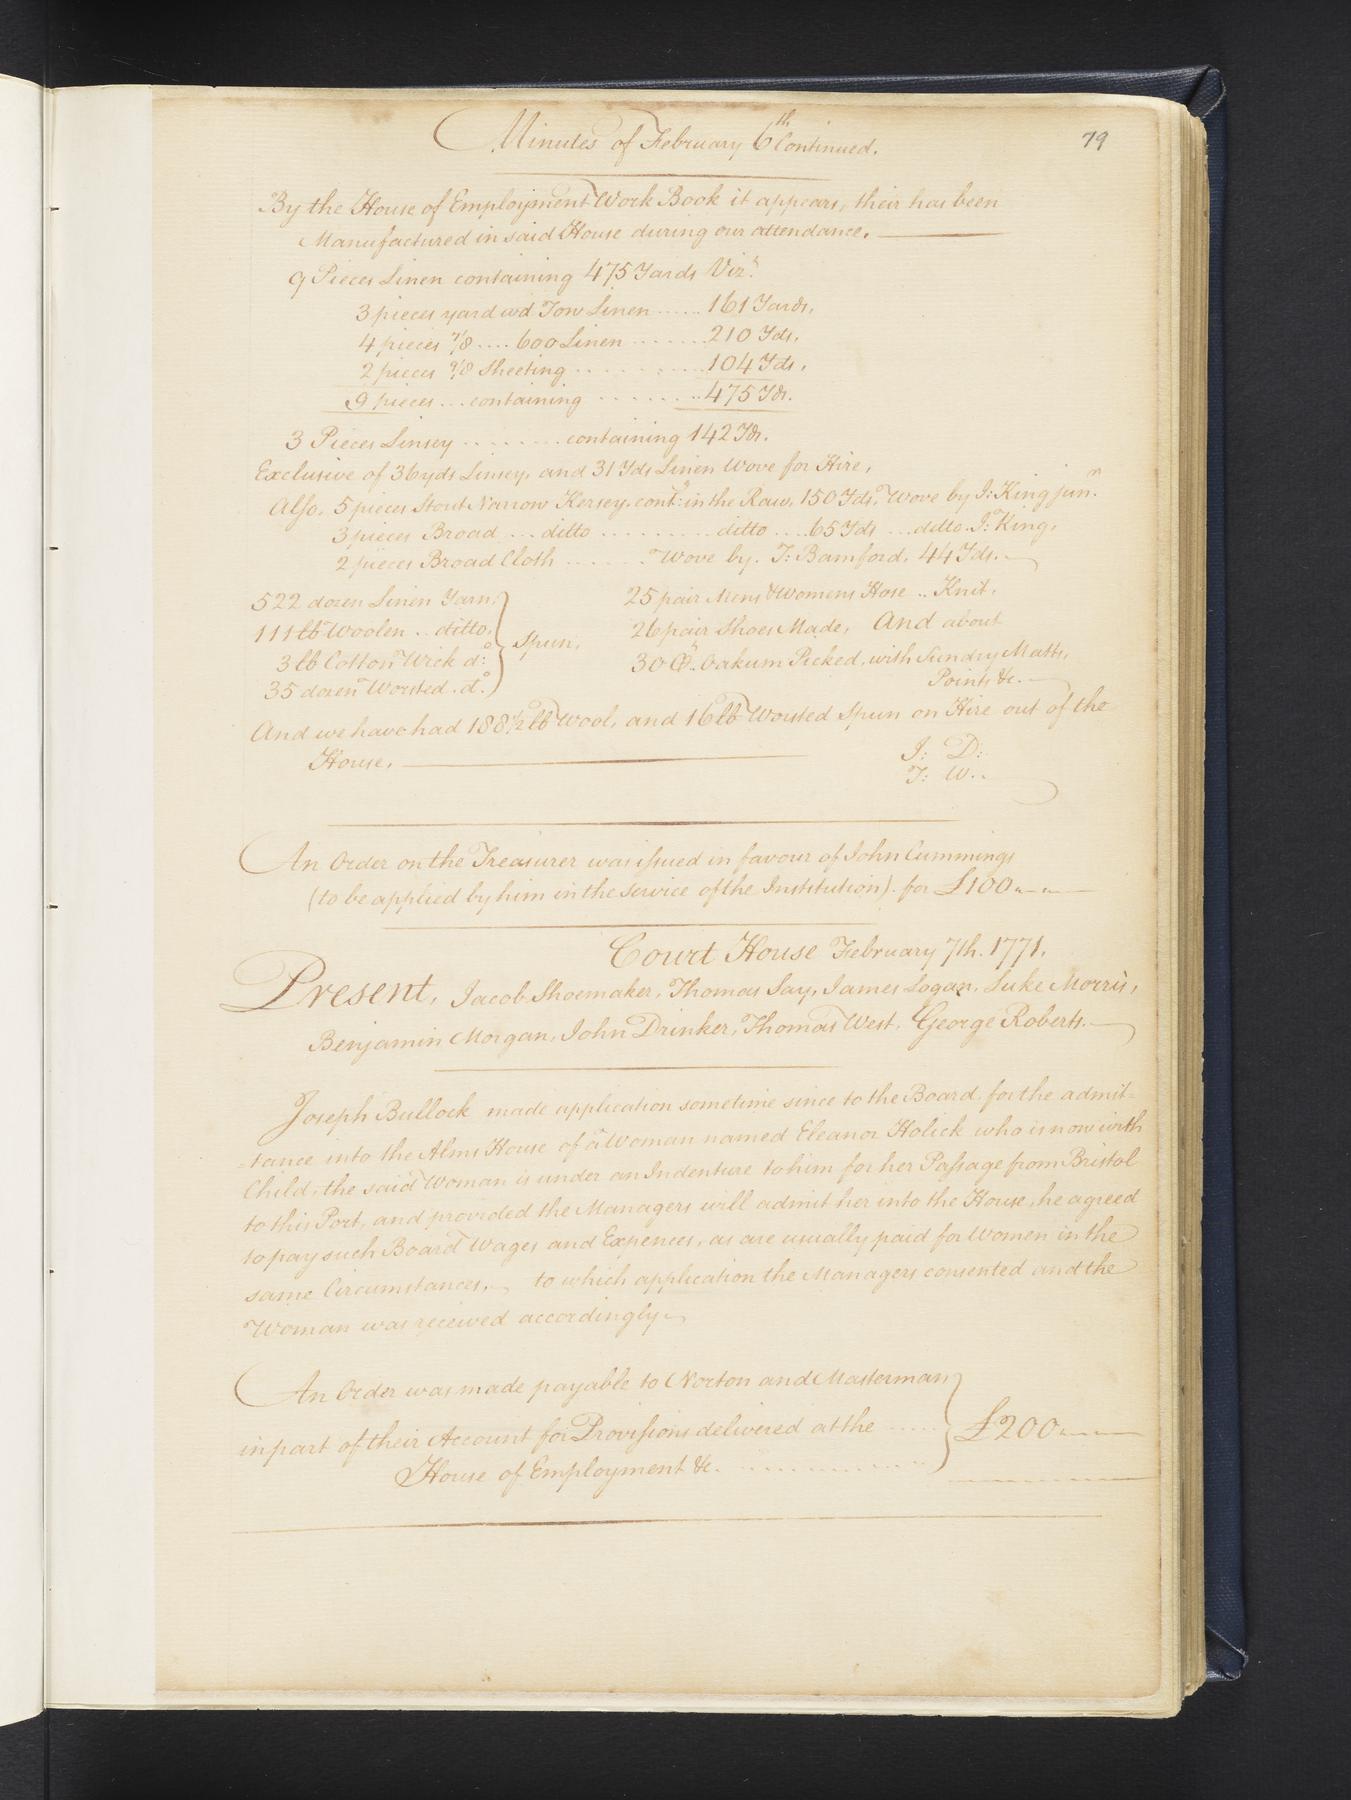 Minutes of February 6th Continued.
79
By the House of Employment Work Book it appears, their has been
Manufactured in said House during our attendance.
9 Pieces Linen containing 475 Yards Vizt.
3 pieces yard wd Tow Linen ...... 161 Yards.
4 pieces 7/8 .... 600 Linen ....... 210 Yds.
2 pieces 9/8 Sheeting .......... 104 Yds.
9 pieces ... containing ........ 475 Yds.
3 Pieces Linsey ......... containing 142 Yds.
Exclusive of 36 yds Linsey, and 31 Yds Linen Wove for Hire,
Also, 5 pieces Stout Narrow Kersey, contg. in the Raw, 150 Yds, Wove by J: King junr.
3 pieces Broad ... ditto .......... ditto .... 65 Yds ... ditto J: King.
2 pieces Broad Cloth ....... Wove by. T: Bamford, 44 Yds.
522 dozen Linen Yarn.
111 lb Woolen .. ditto.
3 lb Cotton Wick do:
35 dozen Worsted. do.
Spun,
25 pair Mens & Womens Hose .. Knit.
26 pair Shoes Made, And about
30 Ct.. Oakum Picked, with Sundry Matts,
Points &c.
And we have had 188 1/2 lb Wool, and 16 lb Worsted Spun on Hire out of the
House.
J: D:
T: W..
An Order on the Treasurer was issued in favour of John Cummings
(to be applied by him in the Service of the Institution). for £100
Court House February 7th. 1771.
Present, Jacob Shoemaker, Thomas Say, James Logan, Luke Morris,
Benjamin Morgan, John Drinker, Thomas West, George Roberts.
Joseph Bullock made application sometime since to the Board, for the admit-
-tance into the Alms House of a Woman named Eleanor Holick who is now with
Child, the said Woman is under an Indenture to him for her Passage from Bristol
to this Port, and provided the Managers will admit her into the House, he agreed
to pay such Board Wages and Expences, as are usually paid for Women in the
same Circumstances, to which application the Managers consented and the
Woman was received accordingly
An Order was made payable to Norton and Masterman
in part of their Account for Provisions delivered at the .....
House of Employment &c. ..............
£200